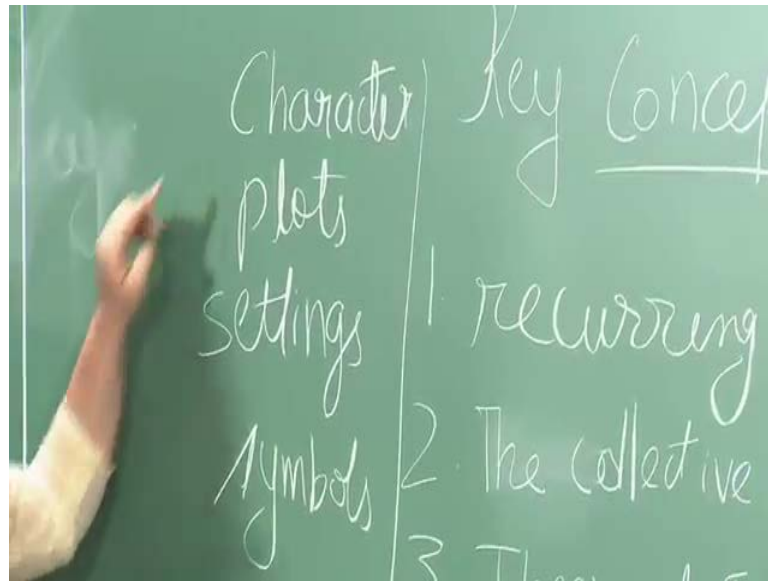 Character
plots
settings
symbols
Key Concep
1. recurring
2. The collective
3.